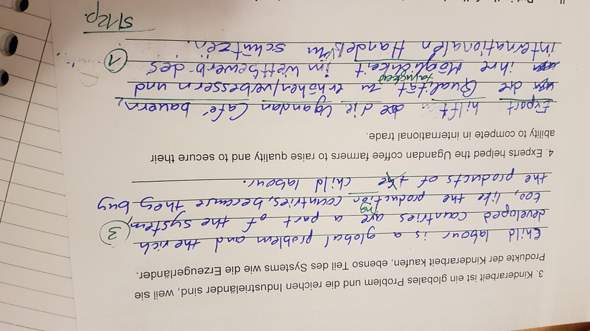 3. Kinderarbeit ist ein globales Problem und die reichen Industrieländer sind, weil sie
Produkte der Kinderarbeit kaufen, ebenso Teil des Systems wie die Erzeugerländer.
Child labour is a global problem and the rich
developed countries are a part of the system, 3
ing
too, like the production countries, because they buy
the products of the child labour.
4 Experts helped the Ugandan coffee farmers to raise quality and to secure their
ability to compete in international trade.
Export hilft die Ugandan Café bauern,
die Qualität zu erhöhen/verbessern und
ihre Möglichkeit im Wettbewerb des 1
internationalen Handels zu schützen.
5/12p.